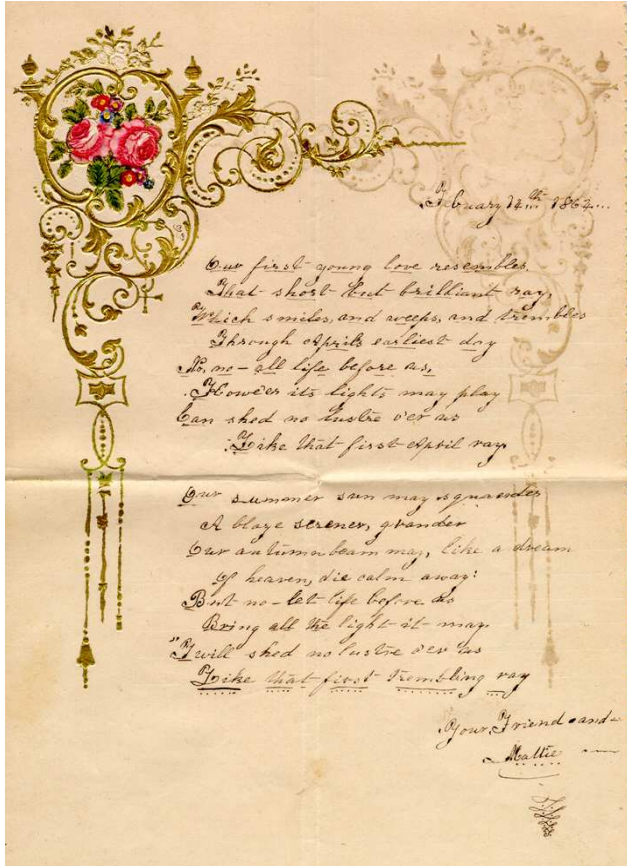 February 14th 1862
Our first young love resembles
That short but brilliant ray,
Which smiles, and weeps, and trembles
Through Aprils earliest day
No, no - all life before us,
Howe'er its lights may play
Can shed no lustre o'er us
Like that first April ray.
Our summer sun may squander
A blaze serener, grander
Our autumn beam may, like a dream
Of heaven, die calm away:
But no - let life before us
Bring all the light it may
"Twill shed no lustre o'er us
Like that first trembling ray
Your Friend and
Mattie